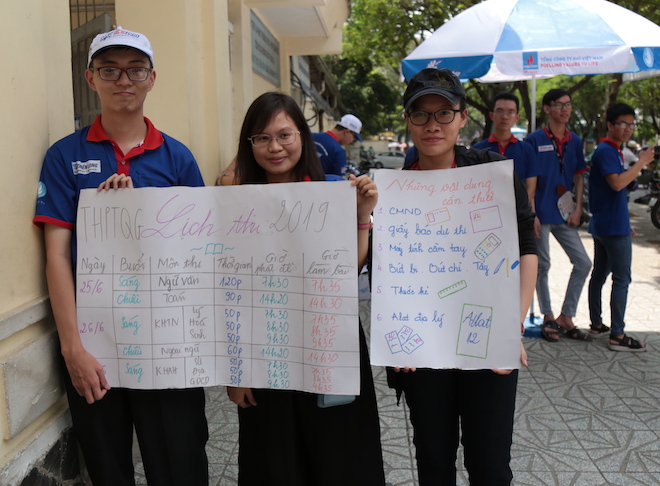 TỔNG CÔNG TY KHÍ VIỆT NAM
THPTQG Lịch thi 2019
Ngày Buổi Môn thi Thời gian Giờ phát đề Giờ làm bài
25/6 Sáng Ngữ văn 120p 7h30 7h35
Chiều Toán 90p 14h20 14h30
26/6 Sáng KHTN Lý 50p 7h30 7h35
Hoá 50p 8h30 8h35
Sinh 50p 9h30 9h35
Chiều Ngoại ngữ 60p 14h20 14h30
Sáng KHXH Sử 50p 7h30 7h35
Địa 50p 8h30 8h35
GDCD 50p 9h30 9h35
Những vật dụng cần thiết
1 CMND
2 Giấy báo dự thi
3 Máy tính cầm tay
4 Bút bi, Bút chì, Tẩy
5 Thước kẻ
6 Atlat địa lý
Atlat
12